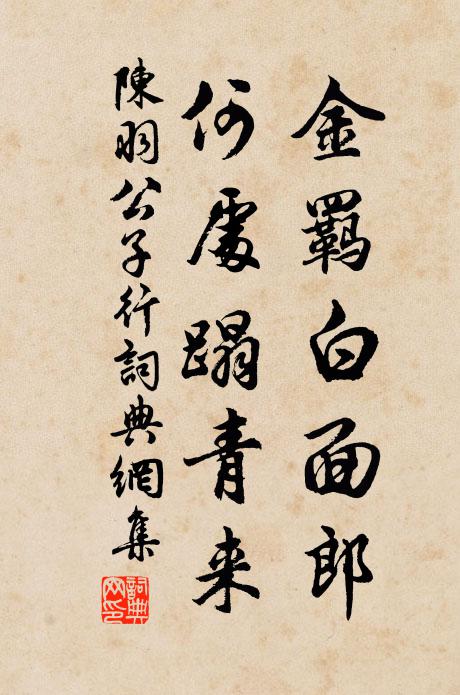 金羈白面郎
何處蹋青来
陳羽公子行詞典網集
詞典網印